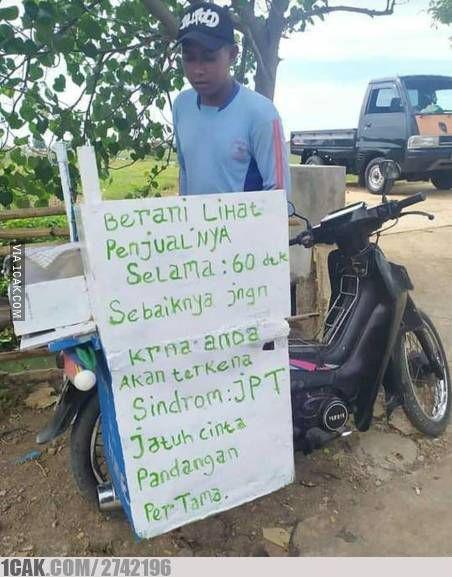 Berani Lihat
Penjual'NYA
Selama : 60 dtk
Sebaiknya jngn
krna anda
Akan terkena
Sindrom : JPT
Jatuh cinta
Pandangan
PerTama.
YAMAHA
VIA 1CAK.COM
1CAK.COM/2742196